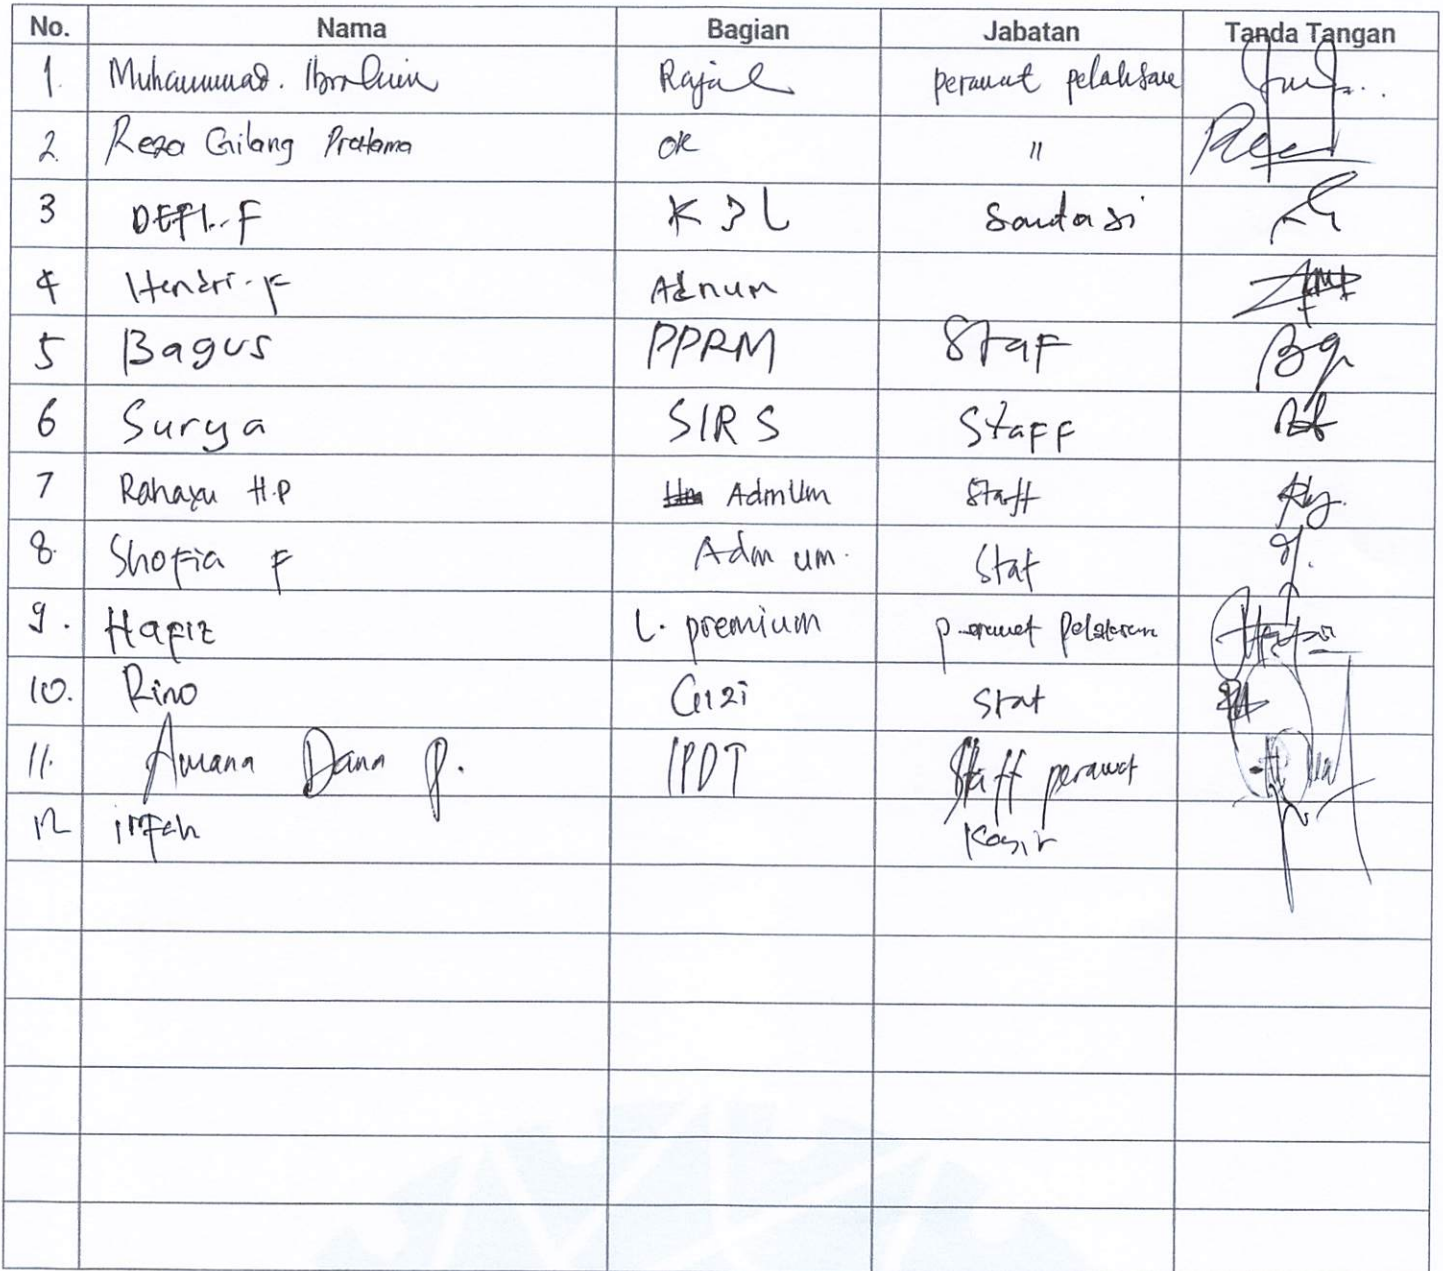 No. Nama Bagian Jabatan Tanda Tangan
1. Muhammad. Ibrahim Rajal perawat pelaksana
2. Reza Gilang Pratama OK "
3 DEFI.F K3L Sanitasi
4 Hendri.F Admum
5 Bagus PPRM Staf
6 Surya SIRS Staff
7 Rahayu H.P AdmUm Staff
8. Shofia F Adm um. Staf
9. Hafiz L. premium perawat pelaksana
10. Rino Gizi Staf
11. Amana Dana P. IPDT Staff perawat
12 irfah Kasir